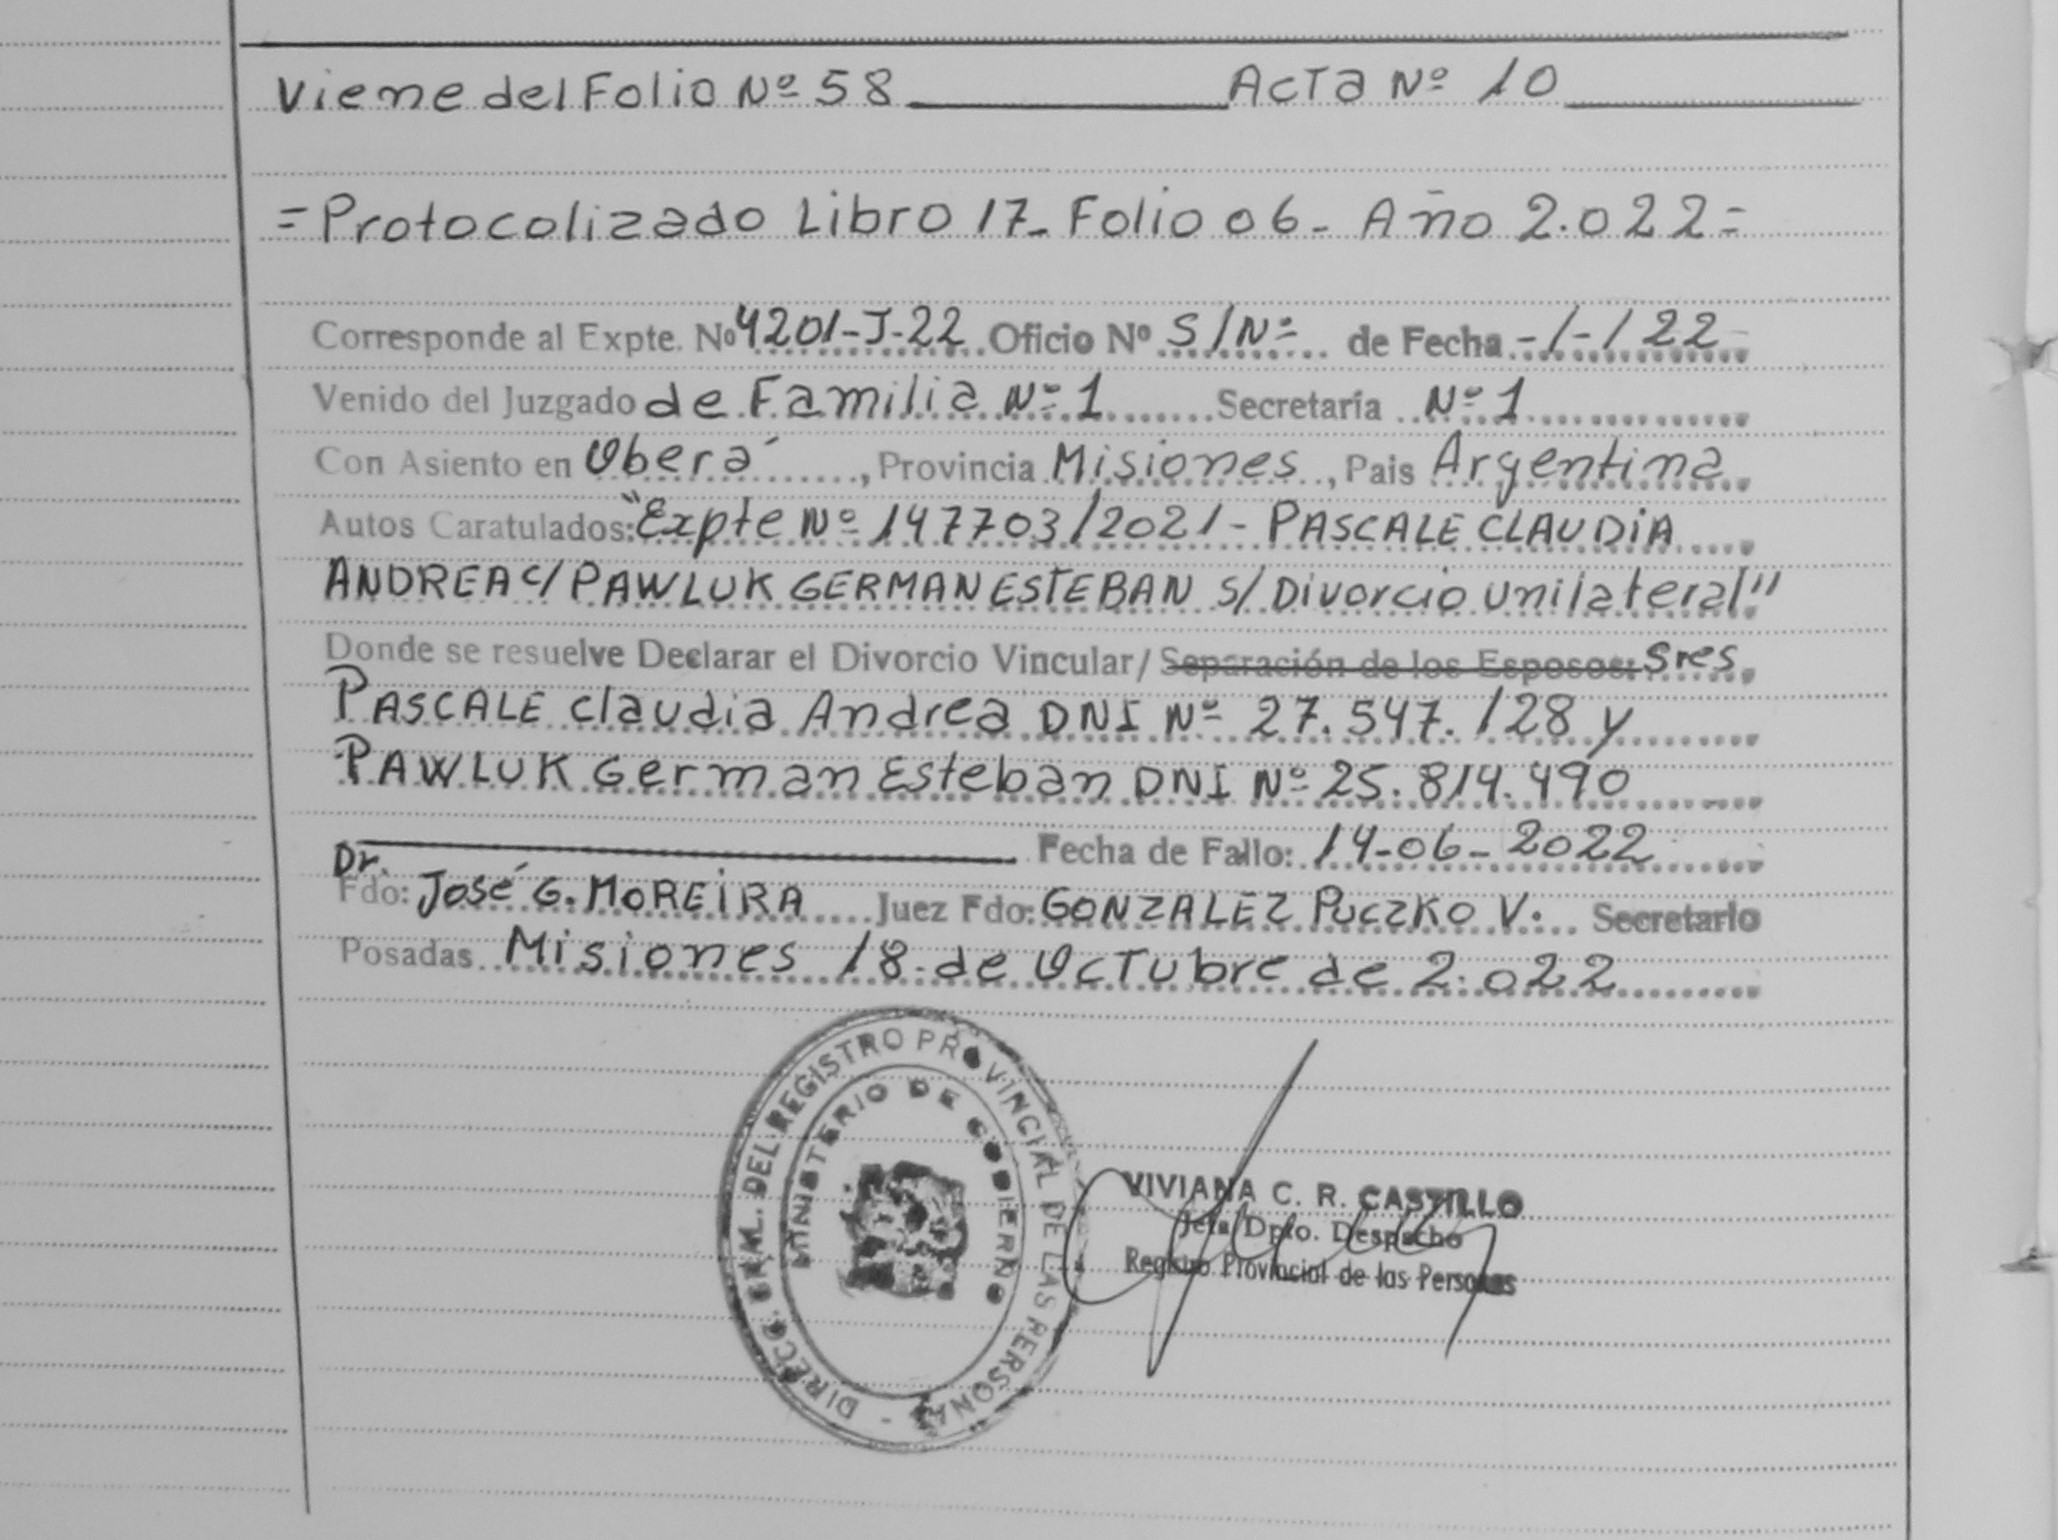 Viene del Folio Nº 58 Acta Nº 10
= Protocolizado Libro 17- Folio 06- Año 2.022=
Corresponde al Expte. Nº 4201-J-22 Oficio Nº S/Nº de Fecha -/-/22
Venido del Juzgado de Familia Nº 1 Secretaría Nº 1
Con Asiento en Oberá, Provincia Misiones, Pais Argentina
Autos Caratulados: "Expte Nº 147703/2021- PASCALE CLAUDIA
ANDREA c/ PAWLUK GERMAN ESTEBAN S/ Divorcio unilateral"
Donde se resuelve Declarar el Divorcio Vincular/ Separación de los Esposos: Sres
PASCALE Claudia Andrea DNI Nº 27.547.128 y
PAWLUK German Esteban DNI Nº 25.814.490
Fecha de Fallo: 14-06-2022
Dr.
Fdo: José G. MOREIRA Juez Fdo: GONZALEZ PUCZKO V. Secretario
Posadas Misiones 18 de Octubre de 2.022
DIRECC. GRAL. DEL REGISTRO PROVINCIAL DE LAS PERSONAS -
MINISTERIO DE GOBIERNO
VIVIANA C. R. CASTILLO
Jefa Dpto. Despacho
Registro Provincial de las Personas